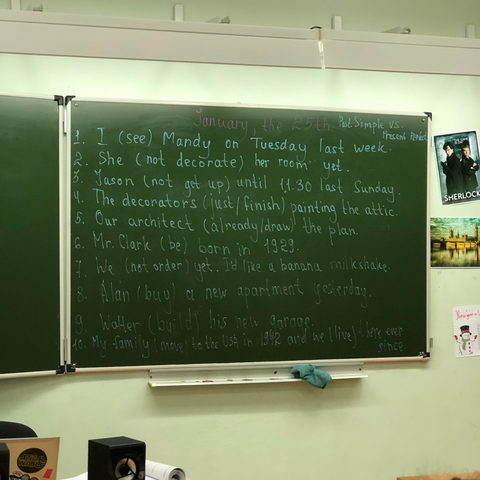 January, the 25th
Past Simple vs.
Present Perfect
1. I (see) Mandy on Tuesday last week.
2. She (not decorate) her room yet.
3. Jason (not get up) until 11.30 last Sunday.
4. The decorators (just/finish) painting the attic.
5. Our architect (already/draw) the plan.
6. Mr. Clark (be) born in 1929.
7. We (not order) yet. I'd like a banana milkshake.
8. Alan (buy) a new apartment yesterday.
9. Walter (build) his new garage.
10. My family (move) to the USA in 1942 and we (live) there ever
since
SHERLOCK